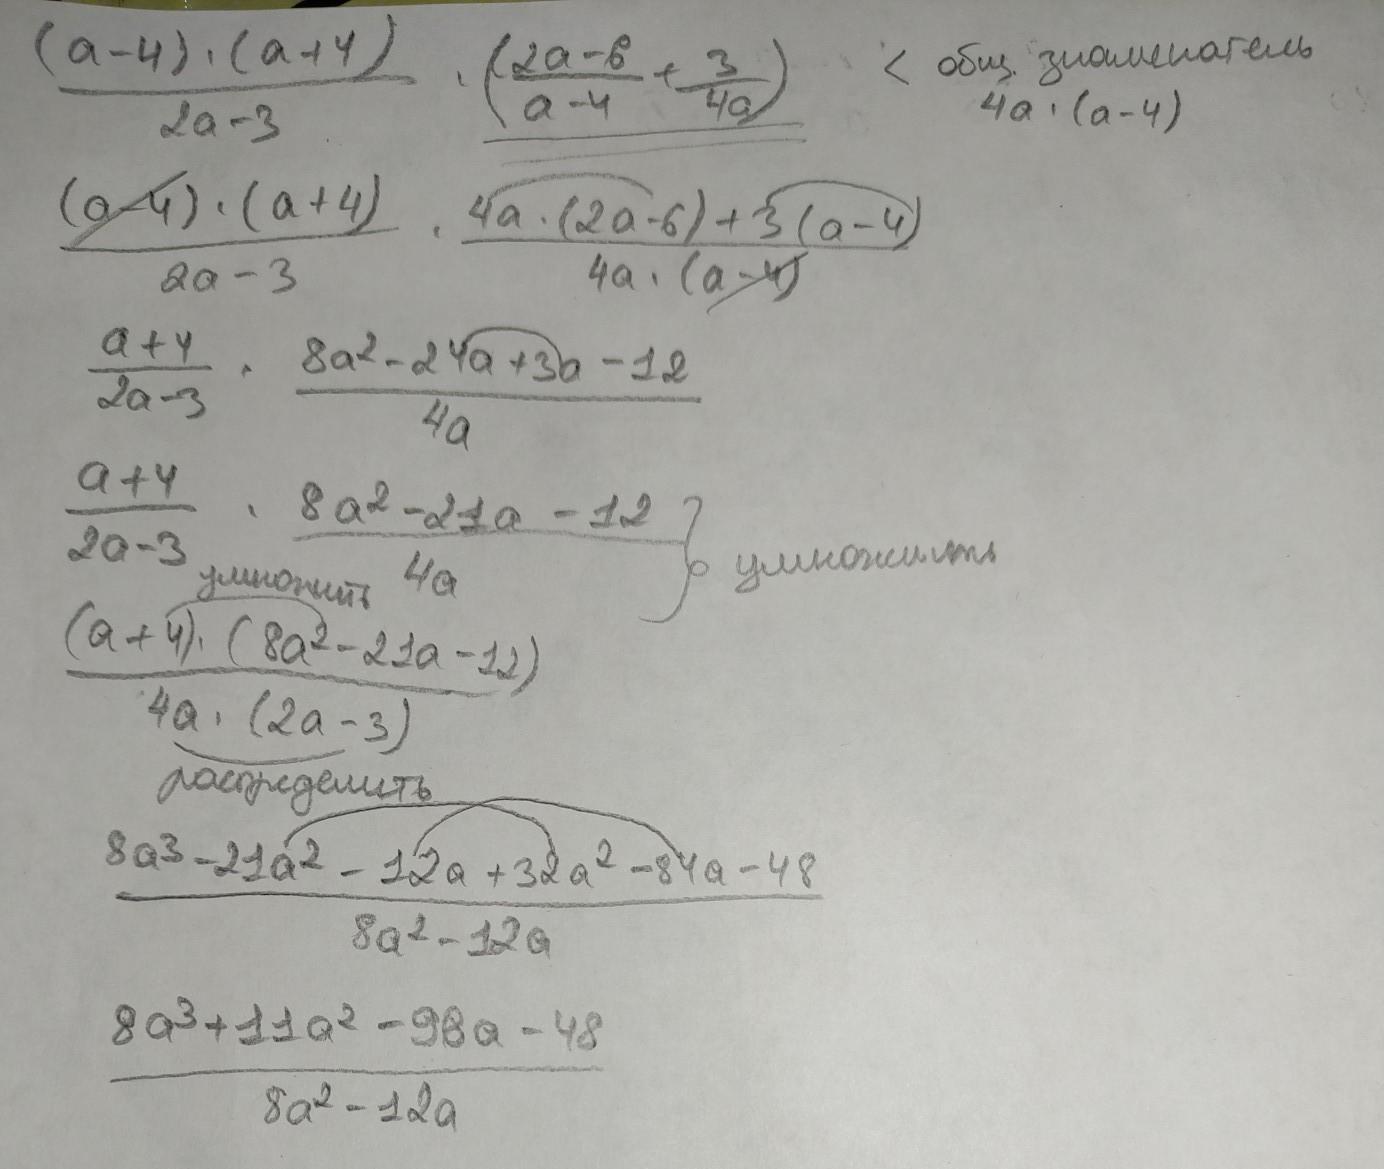 (a-4)·(a+4)/2a-3 · (2a-6/a-4 + 3/4a) < общ. знаменатель
4a·(a-4)
(a-4)·(a+4)/2a-3 · 4a·(2a-6)+3(a-4)/4a·(a-4)
a+4/2a-3 · 8a²-24a+3a-12/4a
a+4/2a-3 · 8a²-21a-12/4a } умножить
умножить
(a+4)·(8a²-21a-12)/4a·(2a-3)
распределить
8a³-21a²-12a+32a²-84a-48/8a²-12a
8a³+11a²-96a-48/8a²-12a